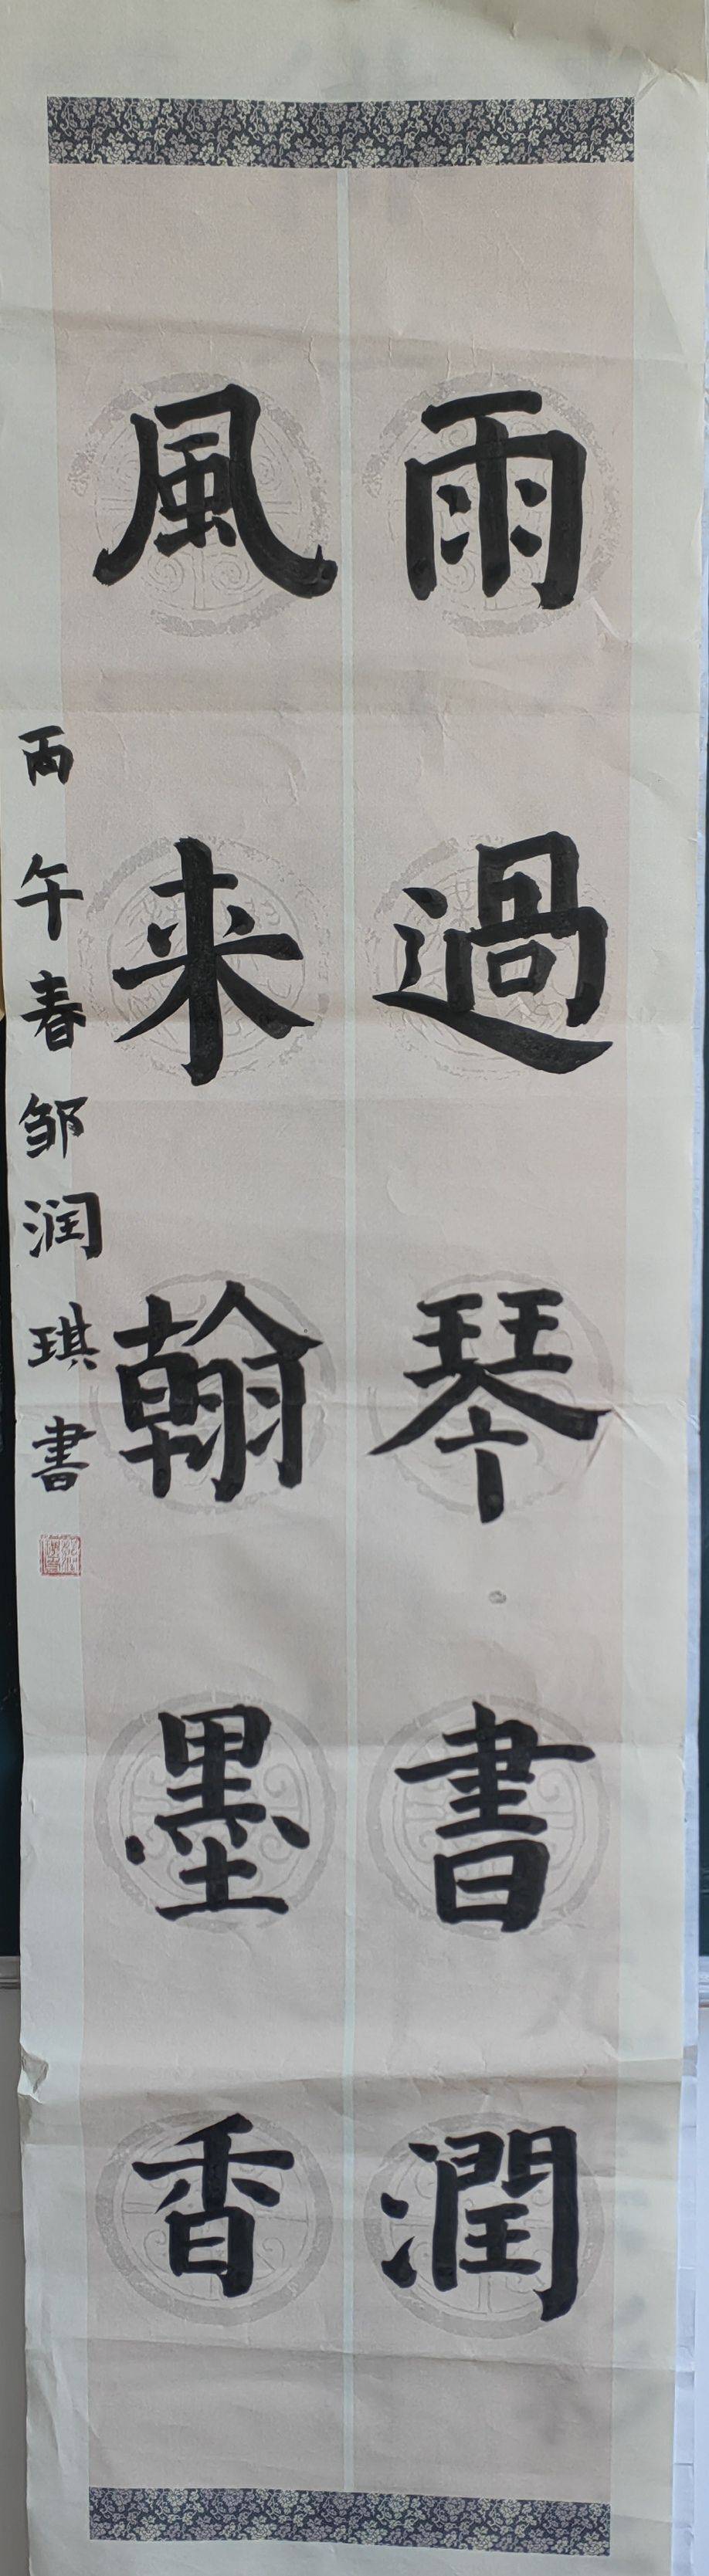 雨過琴書潤
風来翰墨香
丙午春邹润琪書